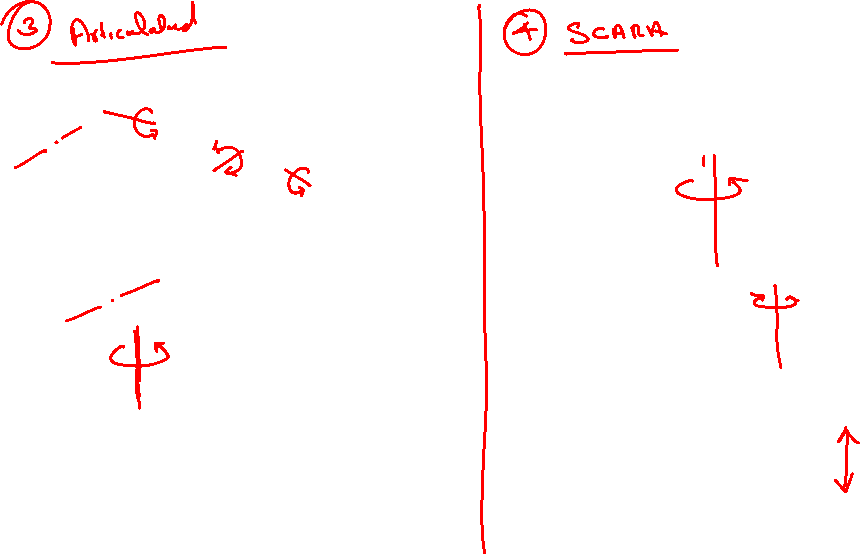 3 Articulated
4 SCARA